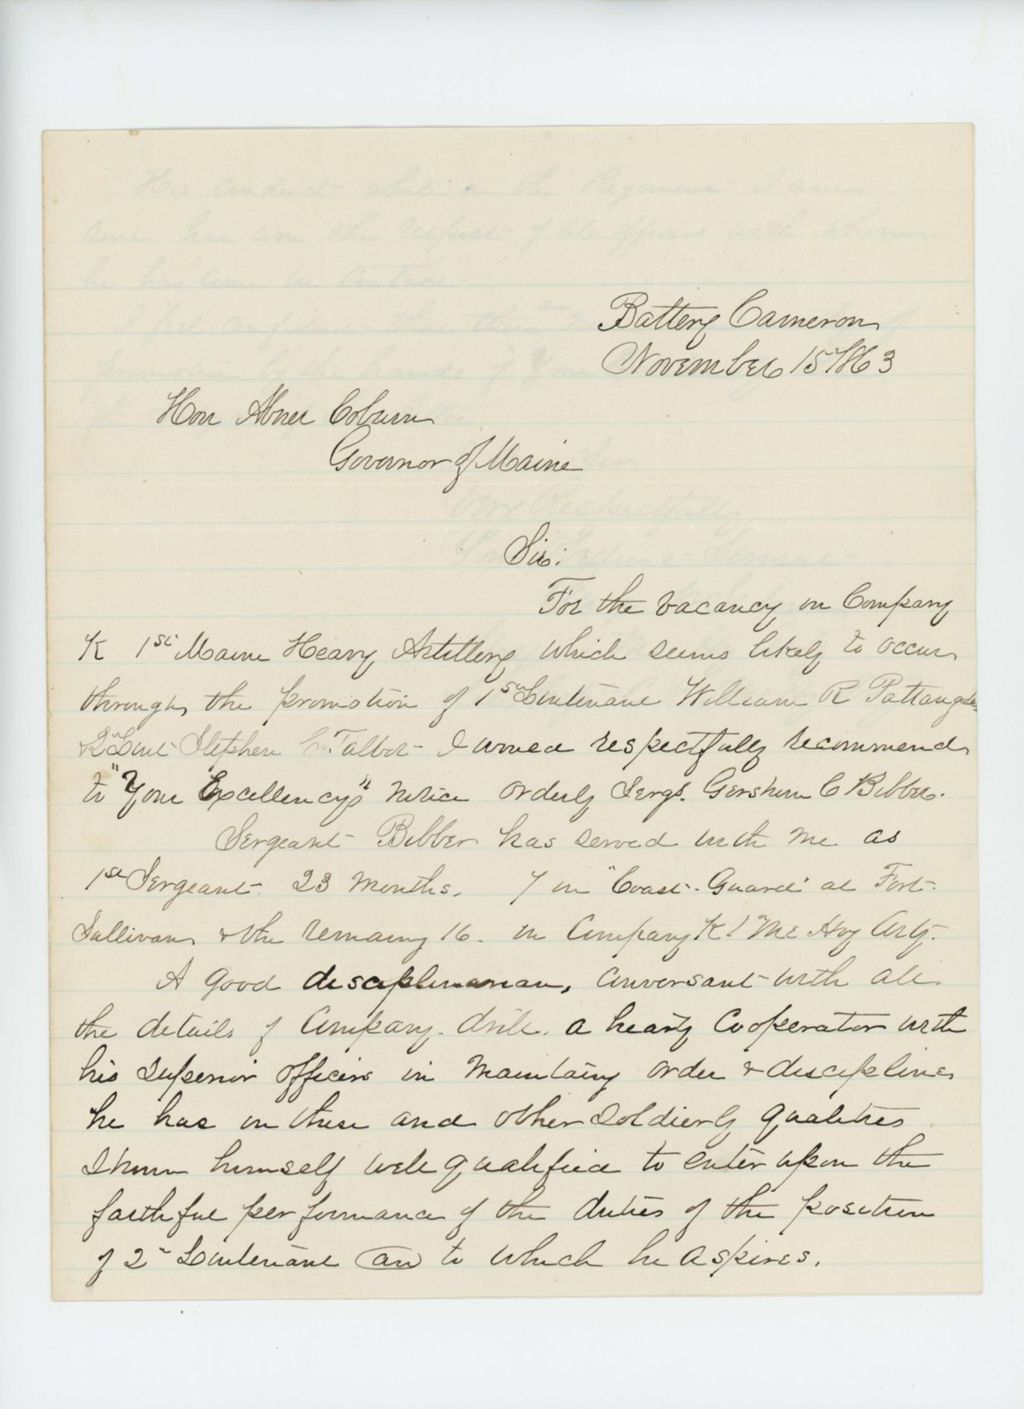 Battery Cameron
November 15" 1863
Hon Abner Coburn
Governor of Maine
Sir:
For the vacancy in Company
K 1st Maine Heavy Artillery which seems likely to occur
through the promotion of 1st Lieutenant William R Pattangall
& 2" Lieut Stephen C. Talbot I would respectfully recommend
to "Your Excellency's" notice Orderly Sergt. Gershum C Bibber.
Sergeant Bibber has served with me as
1st Sergeant 23 months. 7 in "Coast Guard" at Fort
Sullivan & the remaing 16 in Company K 1" Me Hvy Arty.
A good disciplinarian, conversant with all
the details of Company drill. a hearty Cooperator with
his superior officers in maintaing order & discipline
he has in these and other soldierly qualities
shown himself well qualified to enter upon the
faithful performance of the duties of the position
of 2" Lieutenant to which he aspires.